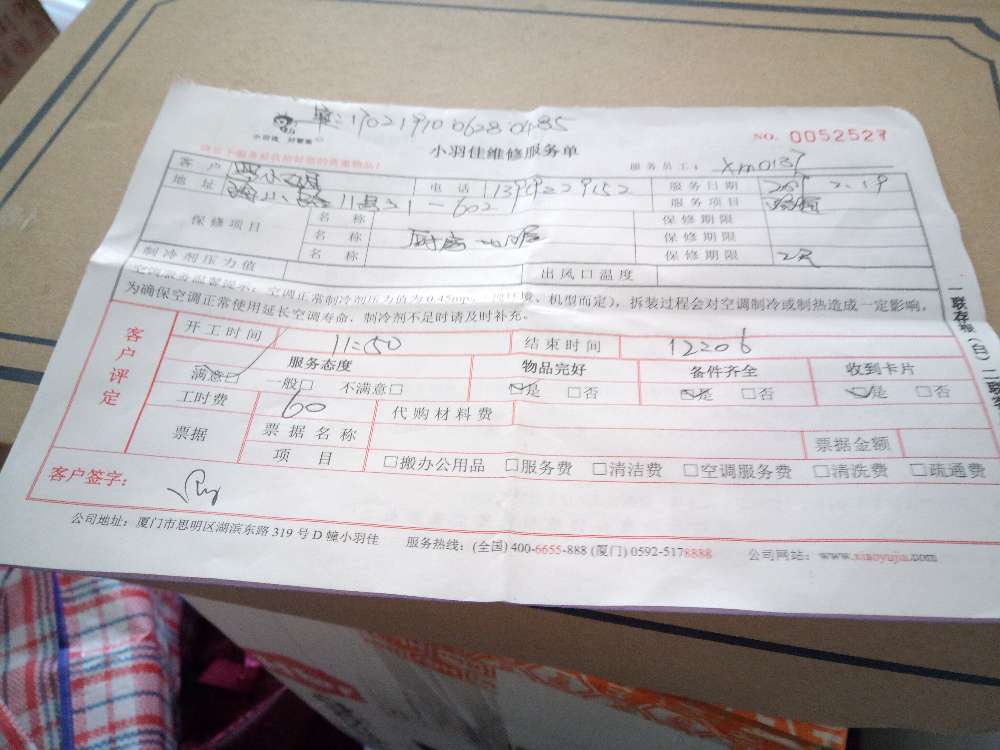 1702191006280485
小羽佳 好管家
NO. 0052527
小羽佳维修服务单
服务员工: xm0137
客户 电话 服务日期 2.19
地址 602 服务项目
保修项目 名称 保修期限
名称 厨房 保修期限
名称 保修期限
制冷剂压力值 出风口温度
空调服务温馨提示: 空调正常制冷剂压力值为0.45mpa 机型而定), 拆装过程会对空调制冷或制热造成一定影响,
为确保空调正常使用延长空调寿命, 制冷剂不足时请及时补充。
客户评定
开工时间 11:50 结束时间 12:06
服务态度 物品完好 备件齐全 收到卡片
满意□ 一般□ 不满意□ 是 □否 是 □否 是 □否
工时费 60 代购材料费
票据 票据名称 票据金额
项目 □搬办公用品 □服务费 □清洁费 □空调服务费 □清洗费 □疏通费
客户签字:
公司地址: 厦门市思明区湖滨东路 319 号 D 幢小羽佳 服务热线: (全国) 400-6655-888 (厦门) 0592-5178888 公司网站: www.xiaoyujia.com